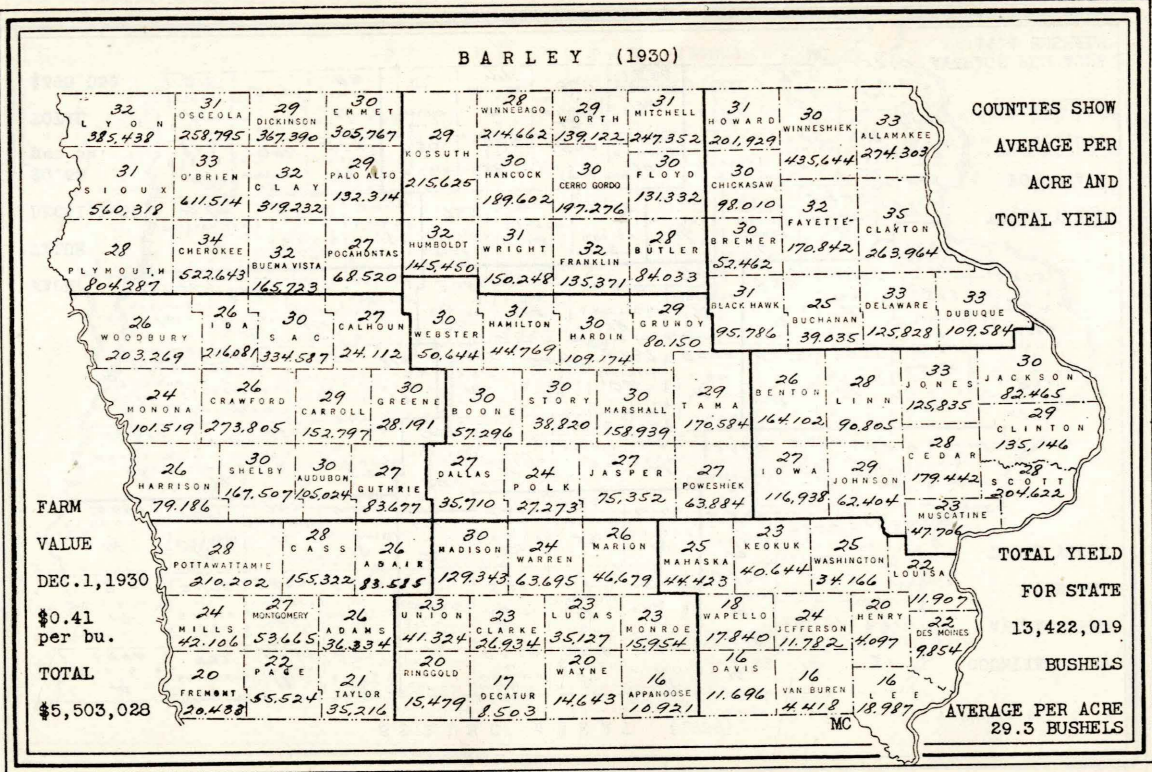 BARLEY (1930)
COUNTIES SHOW
AVERAGE PER
ACRE AND
TOTAL YIELD
32
LYON
385,438
31
OSCEOLA
258,795
29
DICKINSON
367,390
30
EMMET
305,767
29
KOSSUTH
215,625
28
WINNEBAGO
214,662
29
WORTH
139,122
31
MITCHELL
247,352
31
HOWARD
201,929
30
WINNESHIEK
435,644
33
ALLAMAKEE
274,303
31
SIOUX
560,318
33
O'BRIEN
611,514
32
CLAY
319,232
29
PALO ALTO
132,314
30
HANCOCK
189,602
30
CERRO GORDO
197,276
30
FLOYD
131,332
30
CHICKASAW
98,010
32
FAYETTE
170,842
35
CLAYTON
263,964
28
PLYMOUTH
804,287
34
CHEROKEE
522,643
32
BUENA VISTA
165,723
27
POCAHONTAS
68,520
32
HUMBOLDT
145,450
31
WRIGHT
150,248
32
FRANKLIN
135,371
28
BUTLER
84,033
30
BREMER
52,462
26
WOODBURY
203,269
26
IDA
216,081
30
SAC
334,587
27
CALHOUN
24,112
30
WEBSTER
50,644
31
HAMILTON
44,769
30
HARDIN
109,174
29
GRUNDY
80,150
31
BLACK HAWK
95,786
25
BUCHANAN
39,035
33
DELAWARE
125,828
33
DUBUQUE
109,584
24
MONONA
101,519
26
CRAWFORD
273,805
29
CARROLL
152,797
30
GREENE
28,191
30
BOONE
57,296
30
STORY
38,820
30
MARSHALL
158,939
29
TAMA
170,584
26
BENTON
164,102
28
LINN
90,805
33
JONES
125,835
30
JACKSON
82,465
29
CLINTON
135,146
26
HARRISON
79,186
30
SHELBY
167,507
30
AUDUBON
105,024
27
GUTHRIE
83,677
27
DALLAS
35,710
24
POLK
27,273
27
JASPER
75,352
27
POWESHIEK
63,884
27
IOWA
116,938
29
JOHNSON
62,404
28
CEDAR
179,442
28
SCOTT
204,622
23
MUSCATINE
47,706
28
POTTAWATTAMIE
210,202
28
CASS
155,322
26
ADAIR
83,585
30
MADISON
129,343
24
WARREN
63,695
26
MARION
46,679
25
MAHASKA
44,423
23
KEOKUK
40,644
25
WASHINGTON
34,166
22
LOUISA
11,907
24
MILLS
42,106
27
MONTGOMERY
53,665
26
ADAMS
36,334
23
UNION
41,324
23
CLARKE
26,934
23
LUCAS
35,127
23
MONROE
15,954
18
WAPELLO
17,840
24
JEFFERSON
11,782
20
HENRY
4,097
22
DES MOINES
9,854
20
FREMONT
20,433
22
PAGE
55,524
21
TAYLOR
35,216
20
RINGGOLD
15,479
17
DECATUR
8,503
20
WAYNE
14,643
16
APPANOOSE
10,921
16
DAVIS
11,696
16
VAN BUREN
4,418
16
LEE
18,987
MC
FARM
VALUE
DEC.1,1930
$0.41
per bu.
TOTAL
$5,503,028
TOTAL YIELD
FOR STATE
13,422,019
BUSHELS
AVERAGE PER ACRE
29.3 BUSHELS